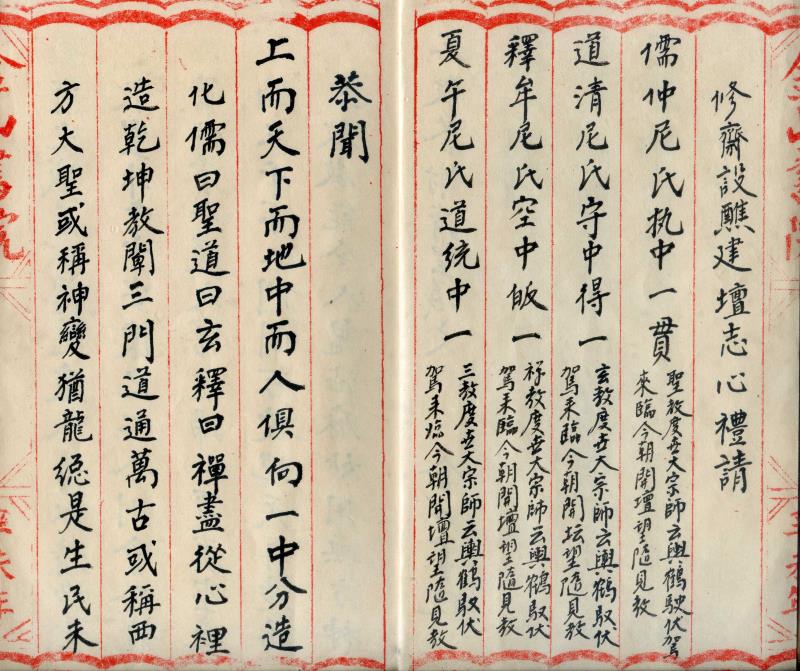 修齋設醮建壇志心禮請
儒仲尼氏执中一貫
聖教度世大宗師云輿鶴馭伏駕
來臨今朝開壇望隨見教
道清尼氏守中得一
玄教度世大宗師云輿鶴馭伏
駕來臨今朝開坛望隨見教
釋牟尼氏空中皈一
禅教度世大宗師云輿鶴馭伏
駕來臨今朝開壇望隨見教
夏午尼氏道統中一
三教度世大宗師云輿鶴馭伏
駕来临今朝開壇望隨見教
恭聞
上而天下而地中而人俱向一中分造
化儒曰聖道曰玄釋曰禪盡從心裡
造乾坤教闡三門道通萬古或稱西
方大聖或稱神變猶龍總是生民未